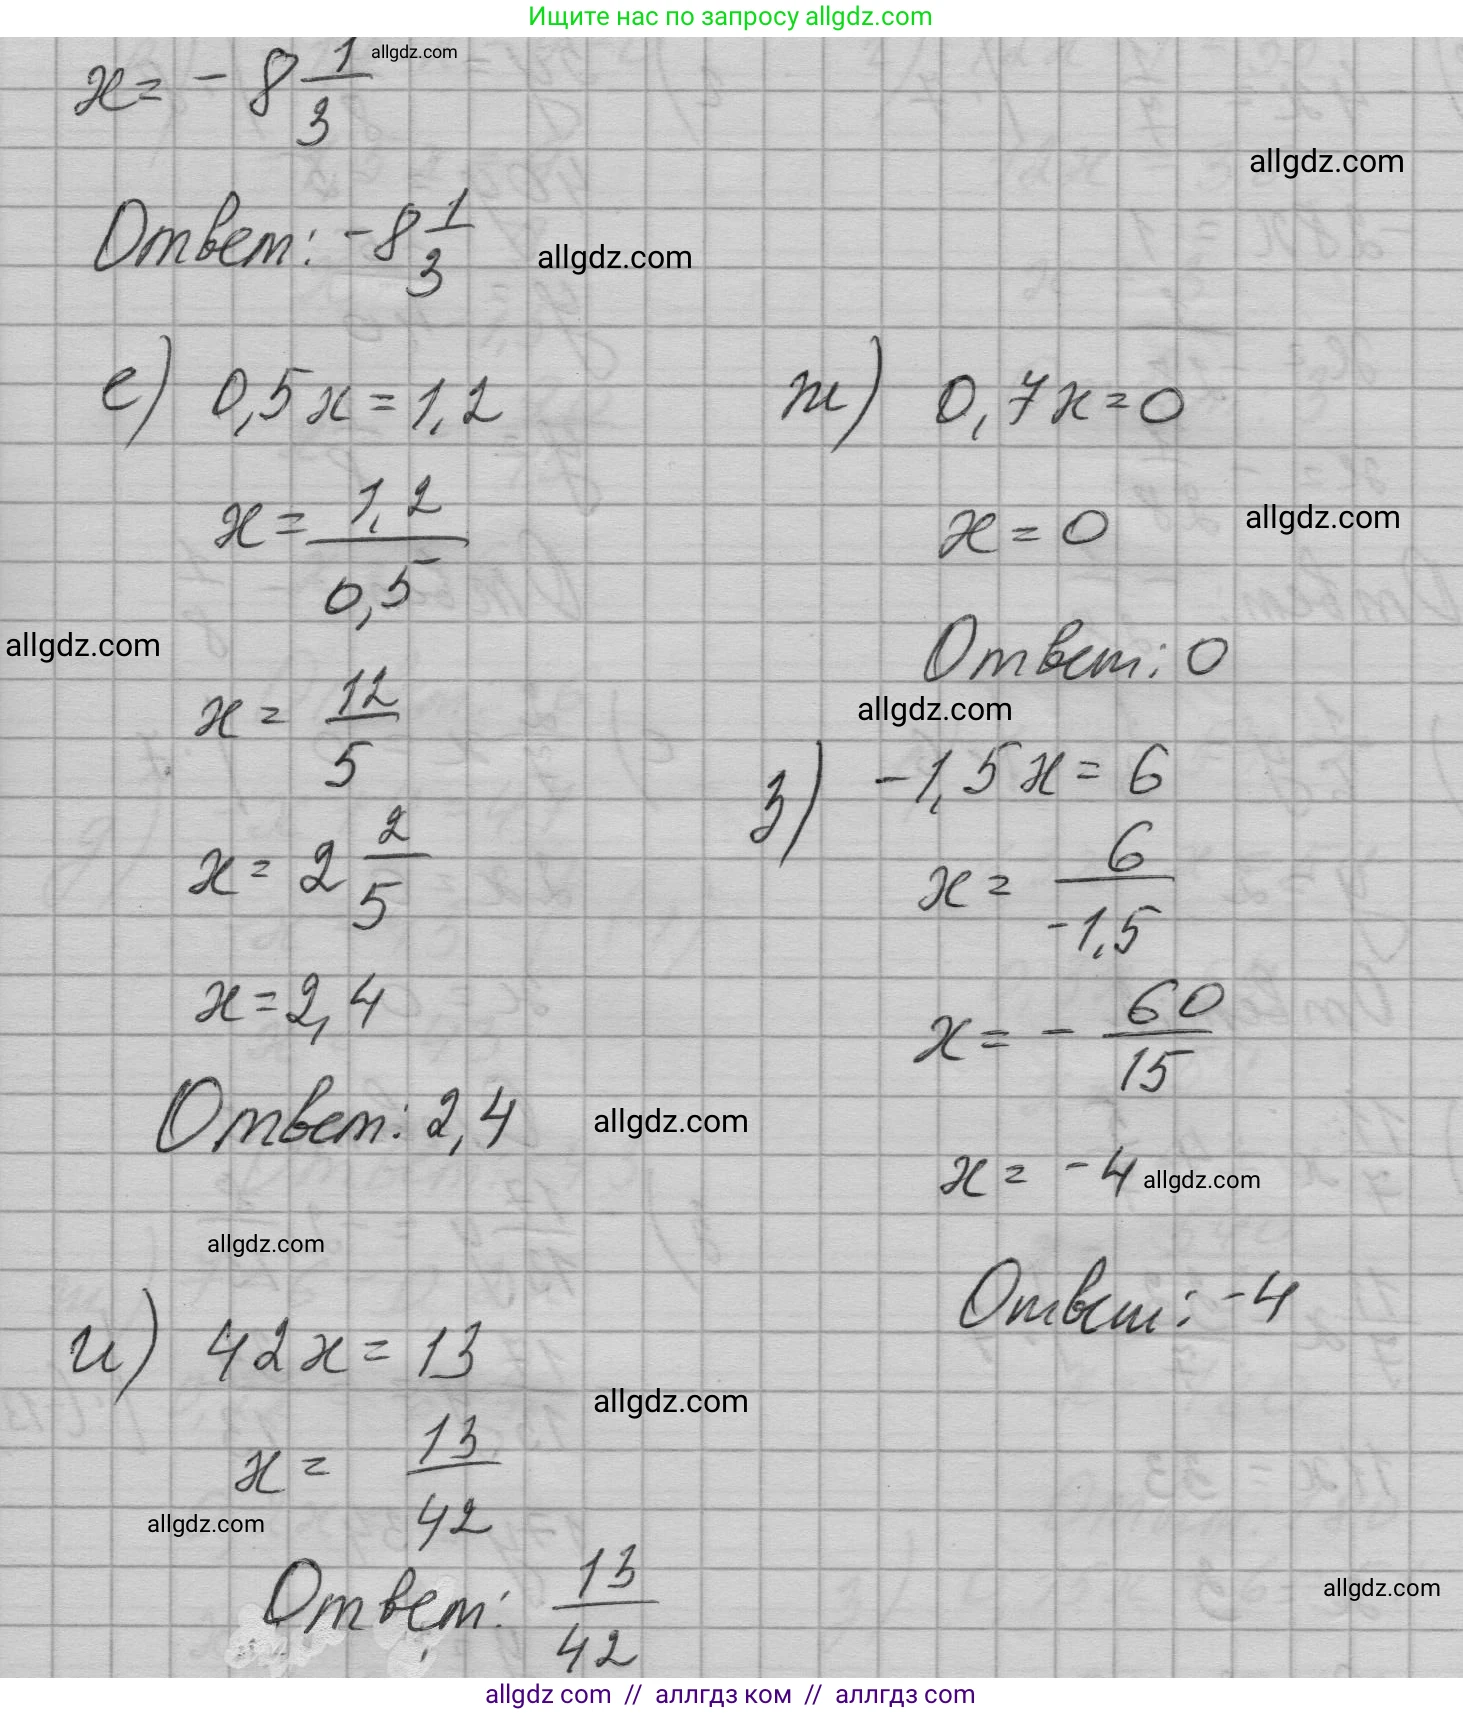 Ищите нас по запросу allgdz.com
x = - 8 1/3
allgdz.com
allgdz.com
Ответ: -8 1/3
allgdz.com
е) 0,5x = 1,2
x = 1,2/0,5
allgdz.com
x = 12/5
x = 2 2/5
x = 2,4
Ответ: 2,4
allgdz.com
allgdz.com
ж) 0,7x = 0
x = 0
allgdz.com
Ответ: 0
allgdz.com
з) -1,5x = 6
x = 6/-1,5
x = - 60/15
x = -4
allgdz.com
Ответ: -4
и) 42x = 13
allgdz.com
x = 13/42
allgdz.com
Ответ: 13/42
allgdz.com
allgdz com // аллгдз ком // аллгдз com